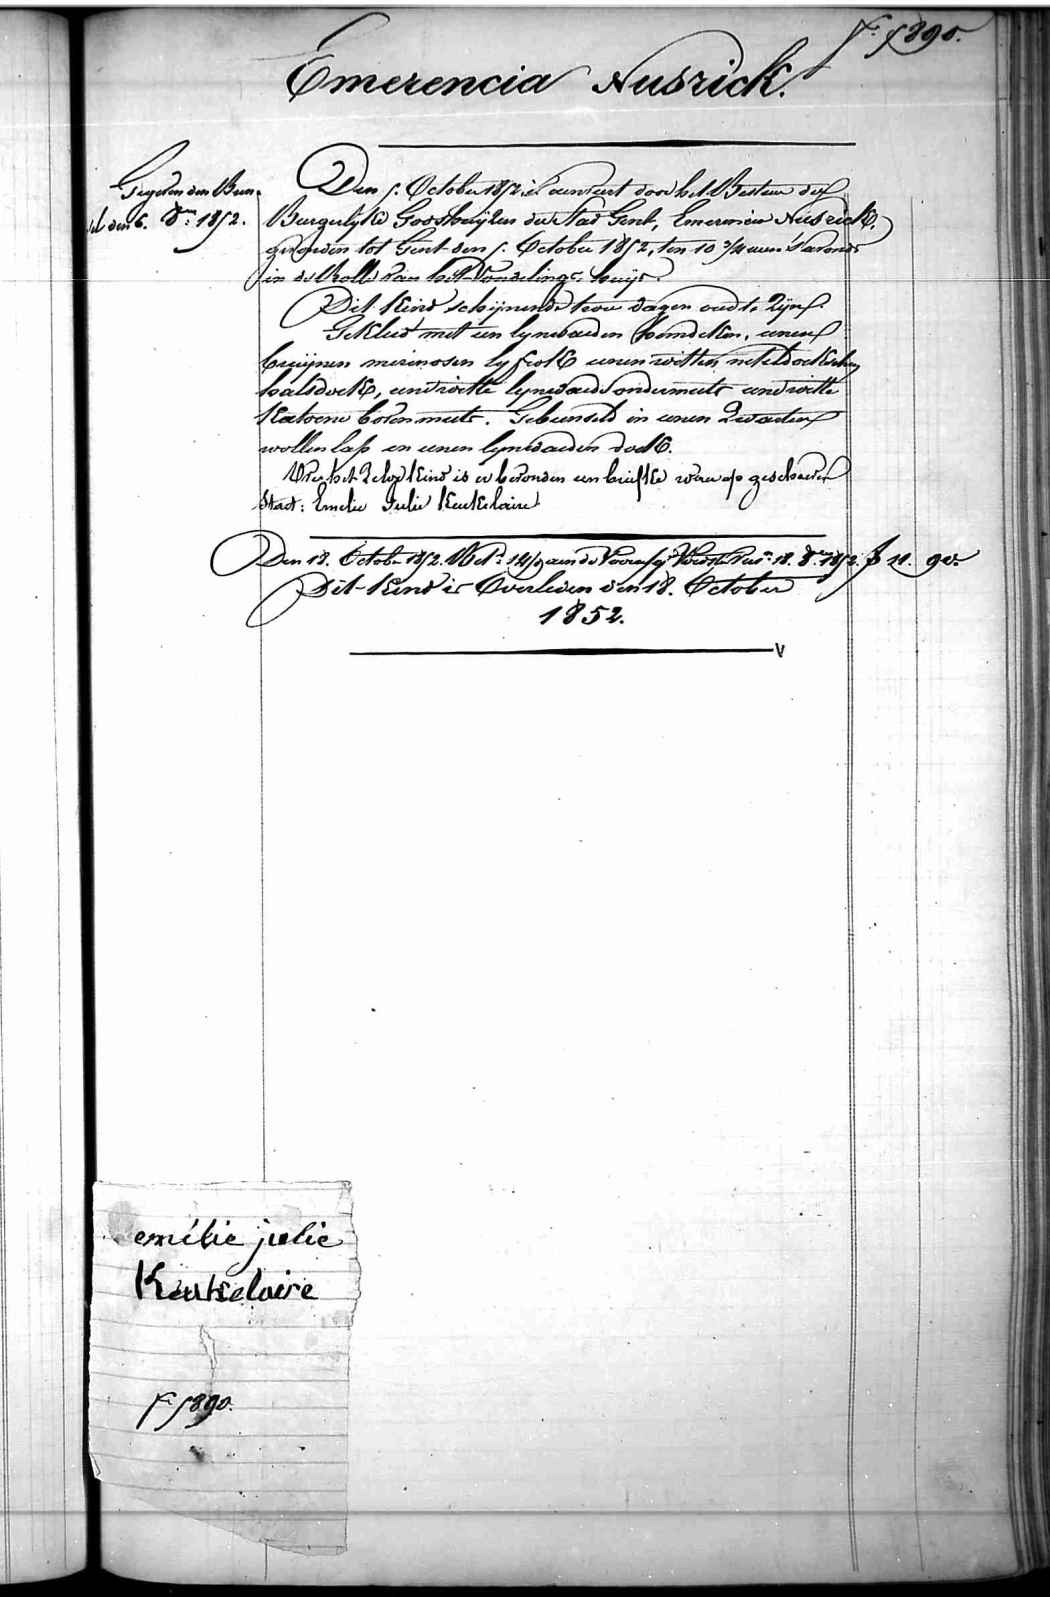 F. 5890.
Emerencia Nusrick.
Gegeven den Bun-
sel den 6. 8en 1852.
Den 5. October 1852 is aenveirt door het Bestuer der
Burgerlijke Godshuijzen der Stad Gent, Emerencia Nusrick,
gevonden tot Gent den 5. October 1852, ten 10 3/4 uren s'avonds
in de Rolle van het Vondelings-huijs.
Dit kind schijnende twee dagen oud te zijn
Gekleed met een lijnwaeden hemdeken, eenen
bruijnen merinosen lyfrok eenen witten neteldoekschen
halsdoek, eene witte lynwaede ondermuts eene witte
katoene bovenmuts. Gebunseld in eenen zwarten
wollen lap en eenen lynwaeden doek.
Over het zelve kind is er bevonden een briefke waer op geschreven
staet: Emelie Julie Keukelaire
Den 18. October 1852. 18. 8en 1852. F 11. 90.
Dit kind is Overleden den 18. October
1852.
emélie julie
Keukelaire
F 5890.